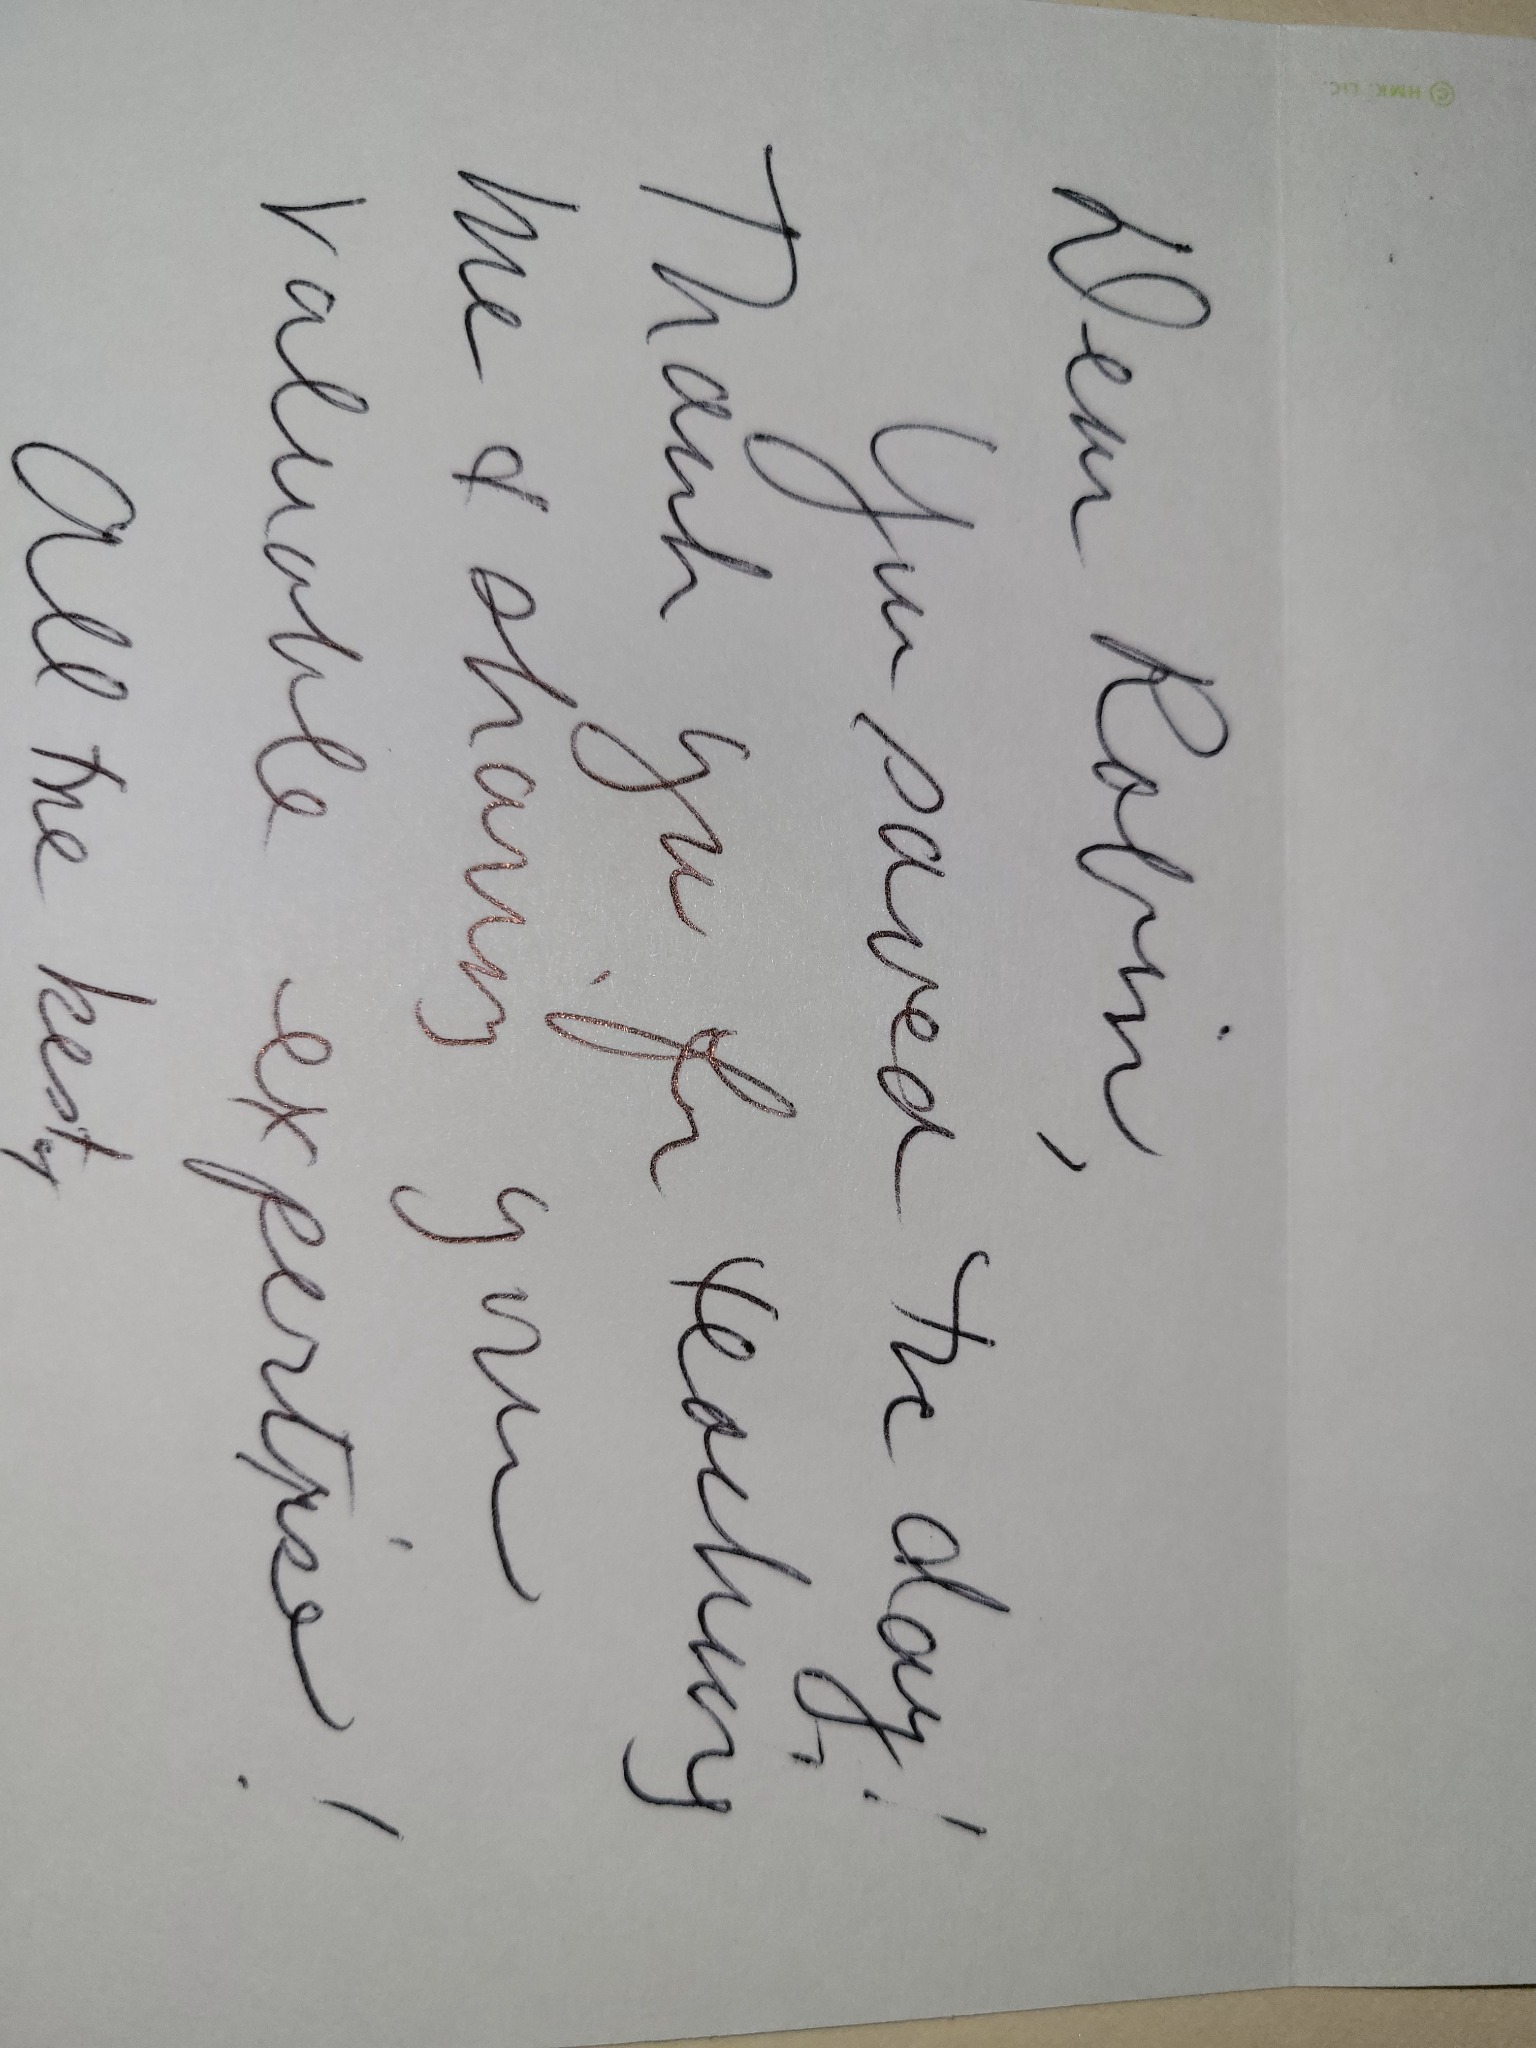 © HMK. LIC.
Dear Robin,
You saved the day!
Thank you for teaching
me & sharing your
valuable expertise!
All the best,